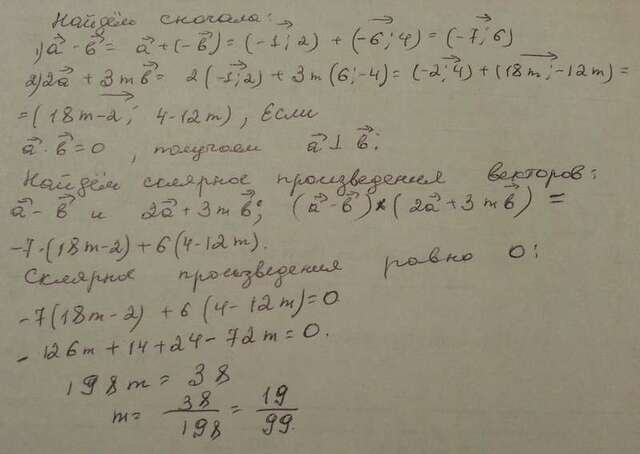 Найдём сначала:
1) a⃗ - b⃗ = a⃗ + (-b⃗) = (-1; 2) + (-6; 4) = (-7; 6)
2) 2a⃗ + 3m b⃗ = 2(-1; 2) + 3m(6; -4) = (-2; 4) + (18m; -12m) =
= (18m-2; 4-12m), Если
a⃗ · b⃗ = 0, получаем a⃗ ⊥ b⃗:
Найдём склярное произведения векторов:
a⃗ - b⃗ и 2a⃗ + 3m b⃗; (a⃗ - b⃗) × (2a⃗ + 3m b⃗) =
-7·(18m-2) + 6(4-12m).
Склярное произведения равно 0:
-7(18m-2) + 6(4-12m) = 0
-126m + 14 + 24 - 72m = 0.
198m = 38
m = 38/198 = 19/99.